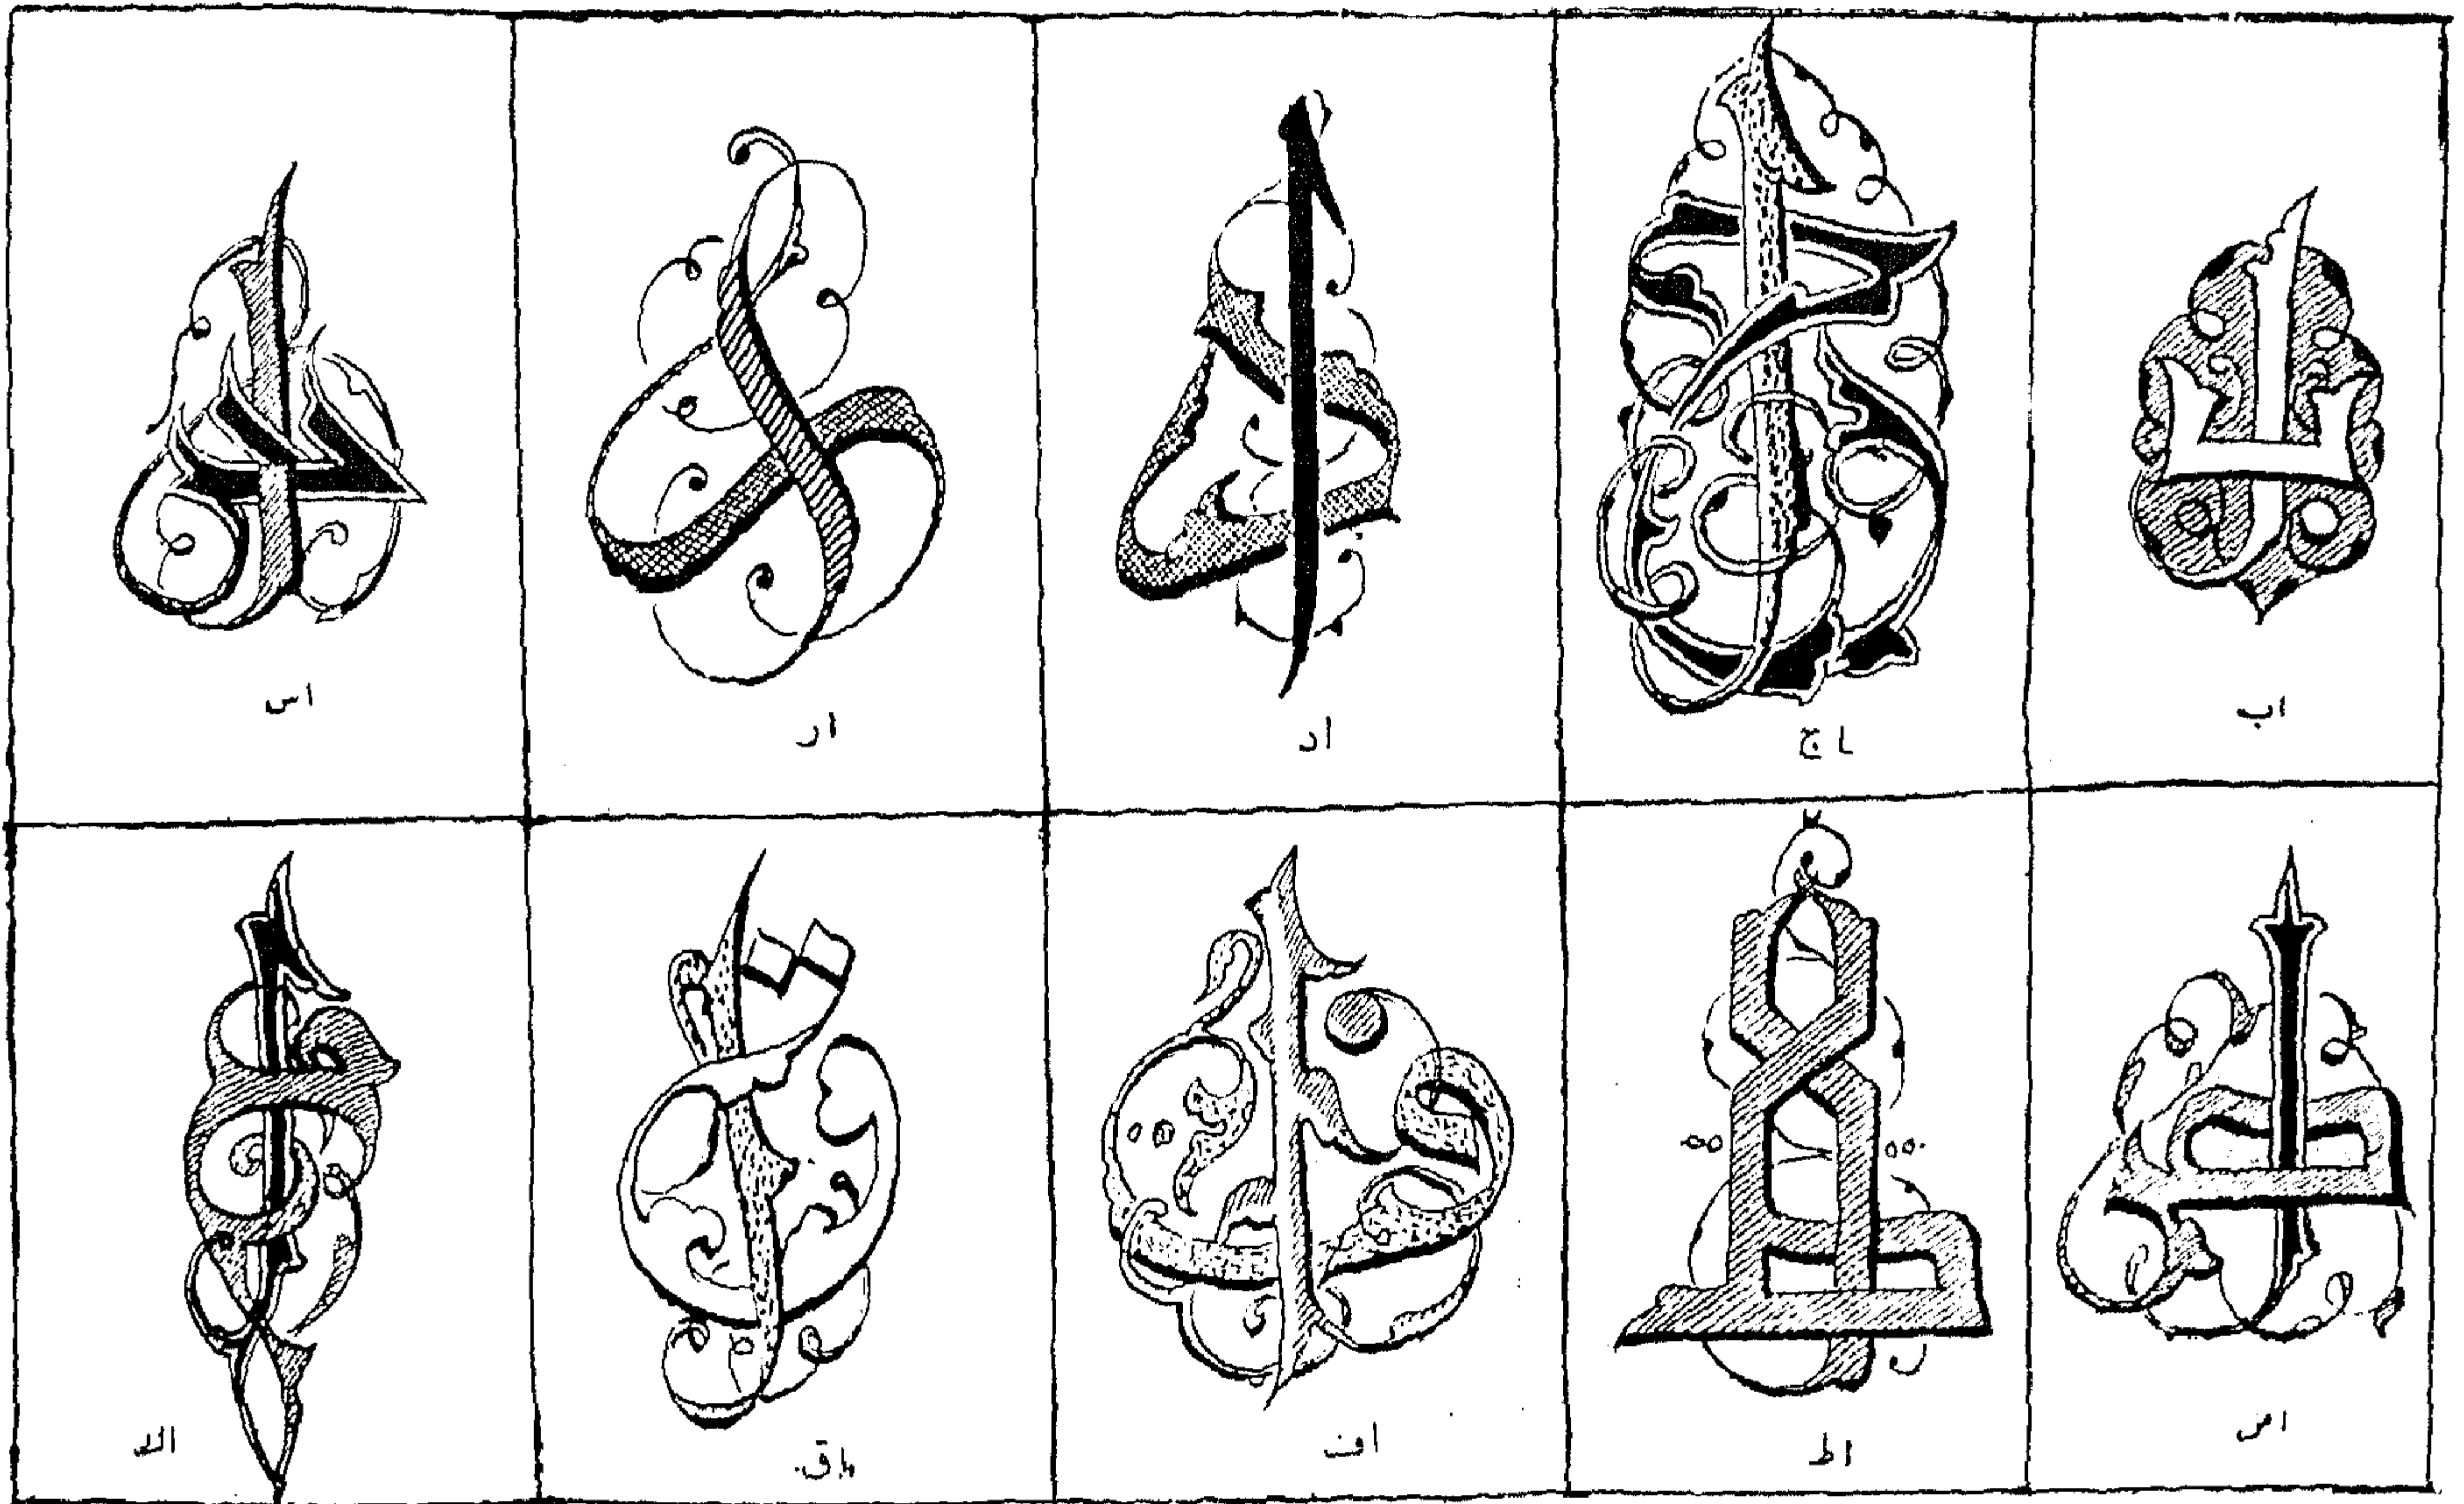 اب
اج
اد
ار
اس
اص
اط
اف
اق